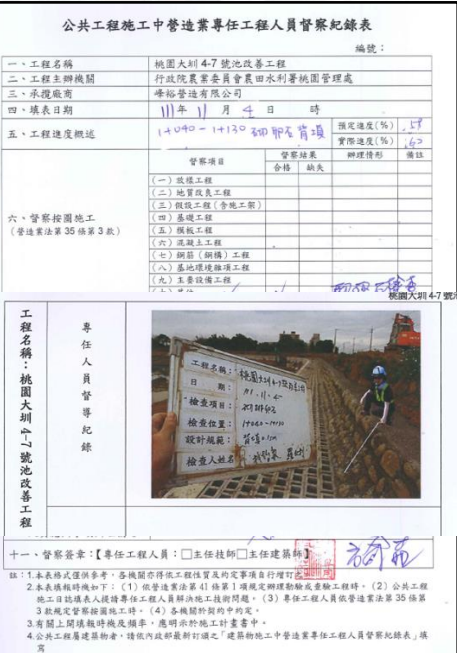 公共工程施工中營造業專任工程人員督察紀錄表
編號：
一、工程名稱 桃園大圳 4-7 號池改善工程
二、工程主辦機關 行政院農業委員會農田水利署桃園管理處
三、承攬廠商 峰裕營造有限公司
四、填表日期 111年 11 月 4 日 時
五、工程進度概述 1+040-1+130 砌卵石背填 預定進度(%) .58
實際進度(%) .60
督察項目 督察結果 辦理情形 備註
合格 缺失
六、督察按圖施工
（營造業法第 35 條第 3 款）
(一) 放樣工程
(二) 地質改良工程
(三) 假設工程（含施工架）
(四) 基礎工程
(五) 模板工程
(六) 混凝土工程
(七) 鋼筋（鋼構）工程
(八) 基地環境雜項工程
(九) 主要設備工程
桃園大圳 4-7 號
工程名稱：桃園大圳 4-7 號池改善工程
專任人員督導紀錄
工程名稱：桃園大圳4-7號池改善工程
日 期：111.11.4
檢查項目：砌卵石
檢查位置：1+040-1+130
設計規範：
檢查人姓名
十一、督察簽章：【專任工程人員：□主任技師□主任建築師】
註：1.本表格式僅供參考，各機關亦得依工程性質及約定事項自行增訂之
2.本表填報時機如下：（1）依營造業法第 41 條第 1 項規定辦理勘驗或查驗工程時。（2）公共工程
施工日誌填表人提請專任工程人員解決施工技術問題。（3）專任工程人員依營造業法第 35 條第
3 款規定督察按圖施工時。（4）各機關於契約中約定。
3.有關上開填報時機及頻率，應明示於施工計畫書中。
4.公共工程屬建築物者，請依內政部最新訂頒之「建築物施工中營造業專任工程人員督察紀錄表」填
寫